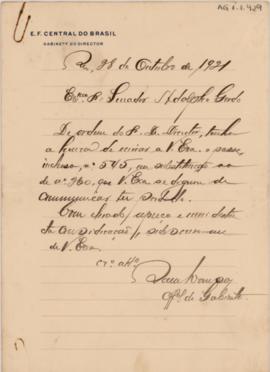 AG 1.1.929
E. F. CENTRAL DO BRASIL
GABINETE DO DIRECTOR
Rio, 28 de Outubro de 1921
Exmo Sr. Senador Adolpho Gordo
De ordem do Sr. Dr. Director, tenho
a honra de enviar a V. Exa. o passe
incluso, nº 545, em substituição ao
de nº 960, que V. Exa. se dignou de
communicar ter perdido.
Com elevado apreço e mui distin
cta consideração, subscrevo-me
de V. Exa.
Offal de Gabinete